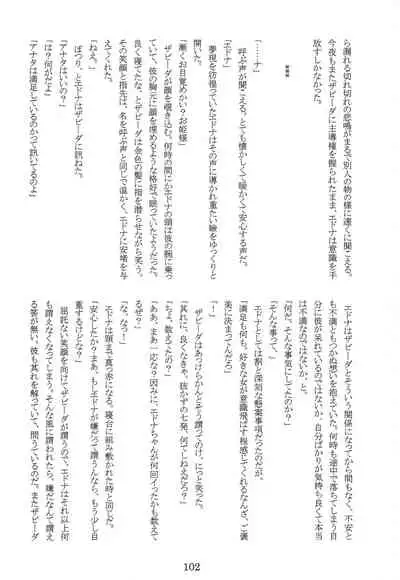 ら漏れる切れ切れの悲鳴がまるで別人の物の様に遠くに聞こえる。
今夜もまたザビーダに主導権を握られたまま、エドナは意識を手
放すしかなかった。
****
「……ナ」
呼ぶ声が聞こえる。とても懐かしくて暖かくて安心する声だ。
「エドナ」
夢現を彷徨っていたエドナはその声に導かれ重たい瞼をゆっくりと
開いた。
「漸くお目覚めかい？お姫様」
ザビーダが顔を覗き込む。何時の間にかエドナの頭は彼の腕に乗っ
ていて、彼の胸元に顔を埋めるような格好で眠っていたようだった。
良く寝てたな、とザビーダは金色の髪に指を潜らせながら笑う。
その笑顔と指先は、名を呼ぶ声と同じで温かく、エドナに安堵を与
えてくれた。
「ねえ。」
ぽつり、とエドナはザビーダに訊ねた。
「アナタはいいの？」
「は？何がだよ」
「アナタは満足しているのかって訊いてるのよ」
エドナはザビーダとそういう関係になってから間もなく、不安と
も不満ともつかぬ想いを抱えていた。何時も途中で落ちてしまう自
分に彼が呆れているのではないか、自分ばかりが気持ち良くて本当
は不満なのではないか、と。
「何だ、そんな事気にしてたのか？」
「そんな事って、」
エドナとしては割と深刻な懸案事項だったのだが、
「満足も何も、好きな女が意識飛ばす程感じてくれるなんざ、ご褒
美に決まってんだろ」
「！」
ザビーダはあっけらかんとそう謂ってのけ、にっと笑った。
「其れに、良くなきゃ、抜かずの七発、何てしねえだろ？」
「ちょ、数えてたの！？」
「ああ、まあ一応な？因みに、エドナちゃんが何回イったかも数えて
るぜっ？」
「な、なっ！」
エドナは頭まで真っ赤になる。寝台に組み敷かれた時と同じだ。
「安心したか？まあ、もしエドナが嫌だって謂うんなら、もう少し自
重するけどな？」
屈託ない笑顔を向けてザビーダが謂うので、エドナはそれ以上何
も謂えなくなってしまう。そんな風に謂われたら、嫌だなんて謂え
る筈が無い。彼も其れを解っていて、問うているのだ。またザビーダ
102